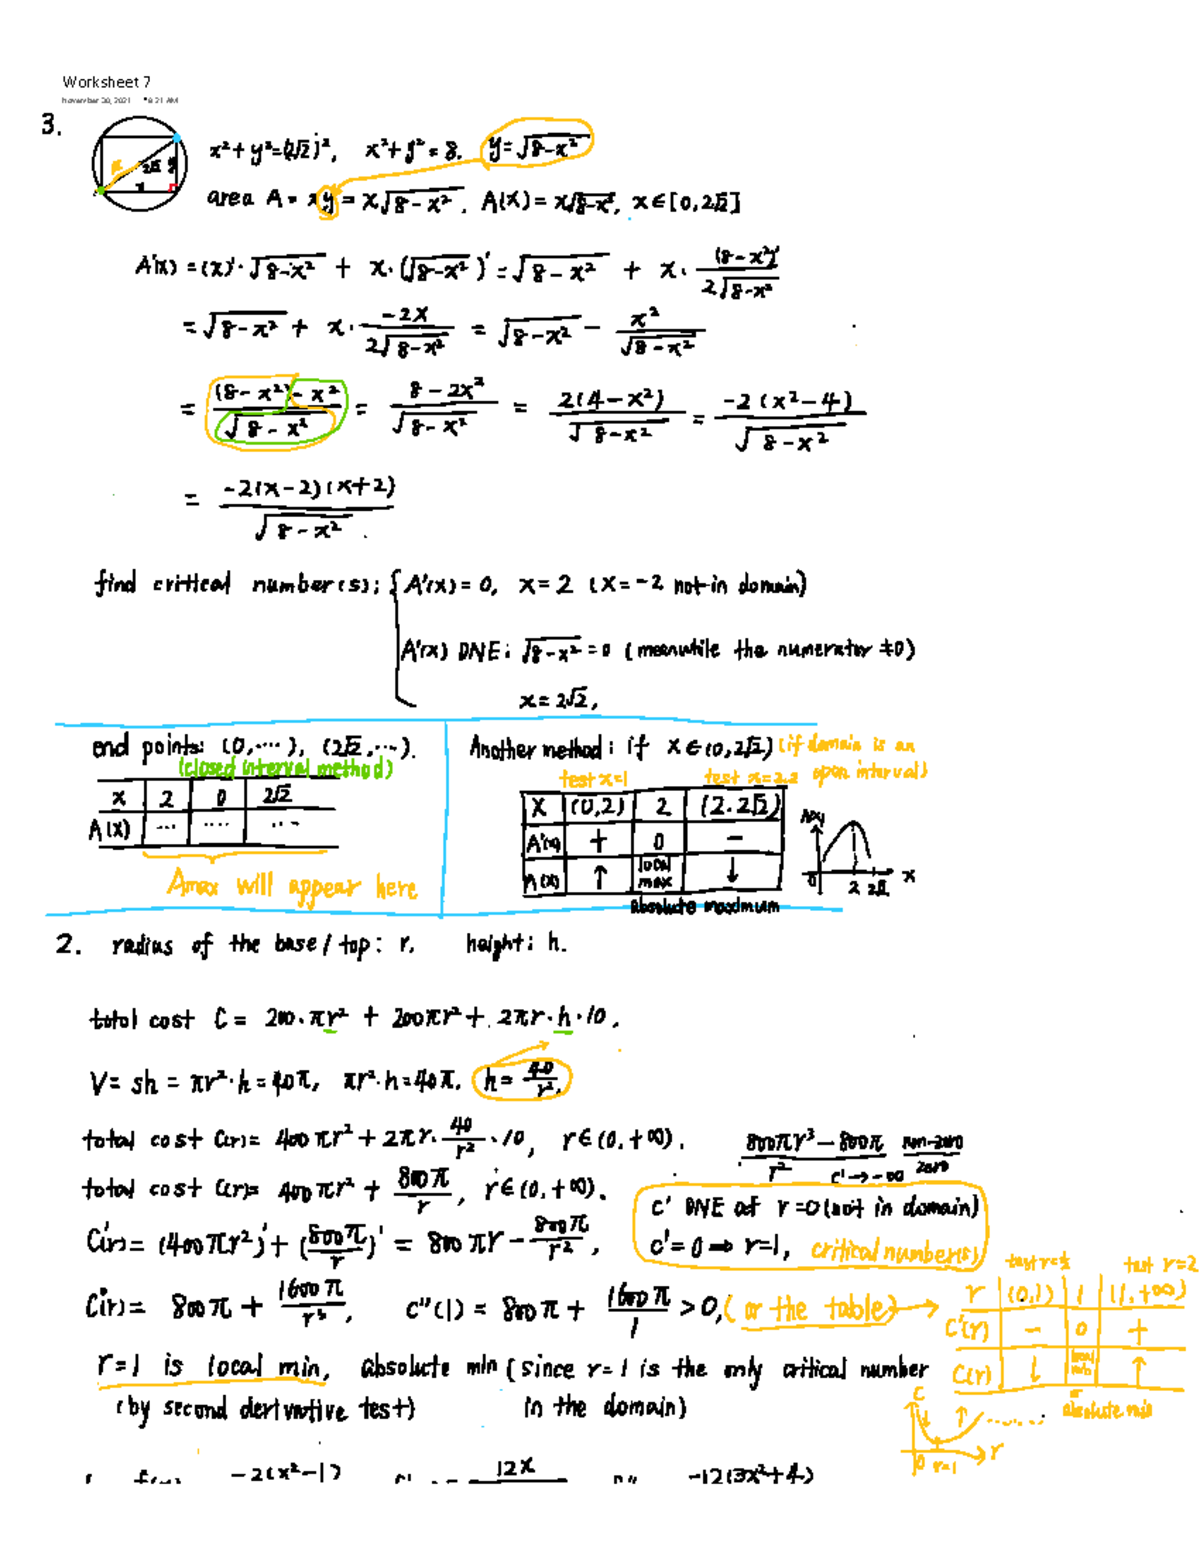 Worksheet 7
November 30, 2021 8:21 AM
3. x² + y² = (2√2)², x² + y² = 8. y = √8-x²
x 2√2 y
x
area A = xy = x√8-x², A(x) = x√8-x², x∈[0,2√2]
A'(x) = (x)'·√8-x² + x·(√8-x²)' = √8-x² + x· (8-x²)' / 2√8-x²
= √8-x² + x· -2x / 2√8-x² = √8-x² - x² / √8-x²
= (8-x²)-x² / √8-x² = 8-2x² / √8-x² = 2(4-x²) / √8-x² = -2(x²-4) / √8-x²
= -2(x-2)(x+2) / √8-x² .
find critical number(s): { A'(x) = 0, x = 2 (x = -2 not in domain)
A'(x) DNE: √8-x² = 0 (meanwhile the numerator ≠0)
x = 2√2,
end points: (0,····), (2√2,···).
(closed interval method)
x 2 0 2√2
A(x) ··· ···· ···
Amax will appear here
Another method: if x∈(0,2√2) (if domain is an open interval)
test x=1 test x=2.2
x (0,2) 2 (2.2√2)
A'(x) + 0 -
A(x) ↑ local max ↓
absolute maximum
A(x)
0 2 2√2 x
2. radius of the base / top: r. height: h.
total cost C = 200·πr² + 200πr² + 2πr·h·10.
V = sh = πr²·h = 40π, πr²·h = 40π. h = 40 / r².
total cost C(r) = 400πr² + 2πr· 40 / r² ·10, r∈(0,+∞).
800πr³ - 800π / r² non-zero / zero
C' → -∞
total cost C(r) = 400πr² + 800π / r, r∈(0,+∞).
C'(r) = (400πr²)' + (800π / r)' = 800πr - 800π / r²,
C' DNE at r=0 (not in domain)
C' = 0 ⇒ r=1, critical number(s)
C''(r) = 800π + 1600π / r³, C''(1) = 800π + 1600π / 1 > 0, (or the table) →
test r=½ test r=2
r (0,1) 1 (1,+∞)
C'(r) - 0 +
C(r) ↓ local min ↑
absolute min
r=1 is local min, absolute min (since r=1 is the only critical number
(by second derivative test) in the domain)
C
0 r=1 r
-2(x²-1) 12x -12(3x²+4)